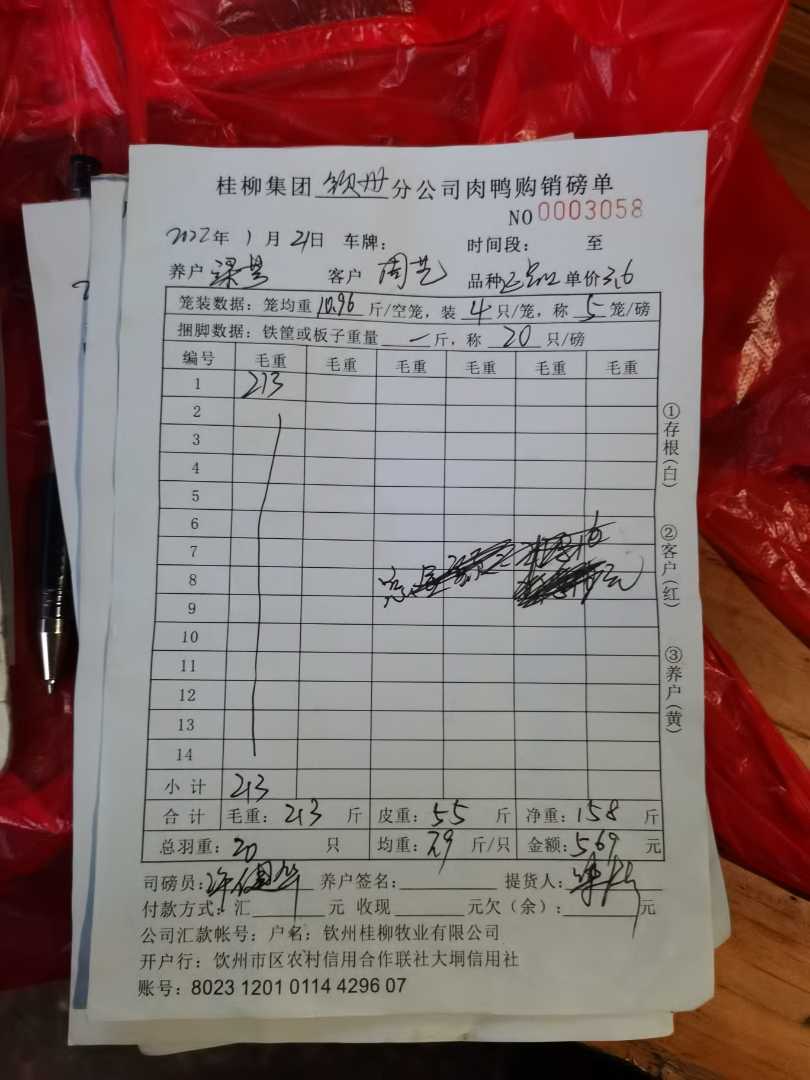 桂柳集团 钦州 分公司肉鸭购销磅单
NO 0003058
2022年 1月 21日 车牌： 时间段： 至
养户 梁 客户 周艺 品种 正品 单价 3.6
笼装数据：笼均重 10.96 斤/空笼，装 4 只/笼，称 5 笼/磅
捆脚数据：铁筐或板子重量 — 斤，称 20 只/磅
编号 毛重 毛重 毛重 毛重 毛重 毛重
1 213
2
3
4
5
6
7
8
9
10
11
12
13
14
小计 213
合计 毛重：213 斤 皮重：55 斤 净重：158 斤
总羽重：20 只 均重：7.9 斤/只 金额：569 元
司磅员： 养户签名： 提货人：
付款方式：汇 元 收现 元欠（余）： 元
公司汇款帐号：户名：钦州桂柳牧业有限公司
开户行：饮州市区农村信用合作联社大垌信用社
账号：8023 1201 0114 4296 07
①存根（白）
②客户（红）
③养户（黄）